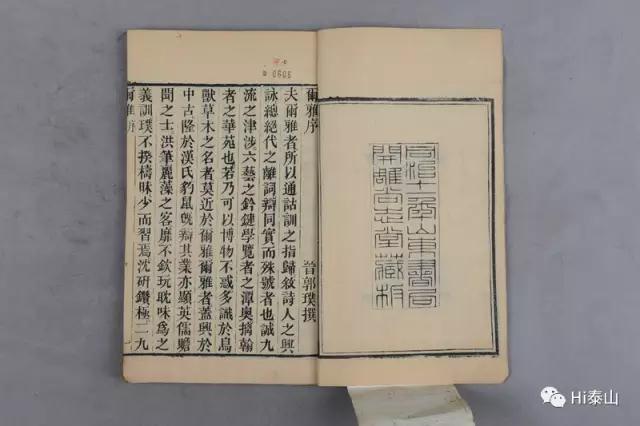 同治十一年山東書局
開雕尚志堂藏板
爾雅序 晉郭璞撰
夫爾雅者所以通詁訓之指歸敘詩人之興
詠總絕代之離詞辯同實而殊號者也誠九
流之津涉六藝之鈐鍵學覽者之潭奧摛翰
者之華苑也若乃可以博物不惑多識於鳥
獸草木之名者莫近於爾雅爾雅者蓋興於
中古隆於漢氏豹鼠旣辯其業亦顯英儒贍
聞之士洪筆麗藻之客靡不欽玩耽味爲之
義訓璞不揆檮昧少而習焉沈研鑽極二九
爾雅序 一
Hi泰山